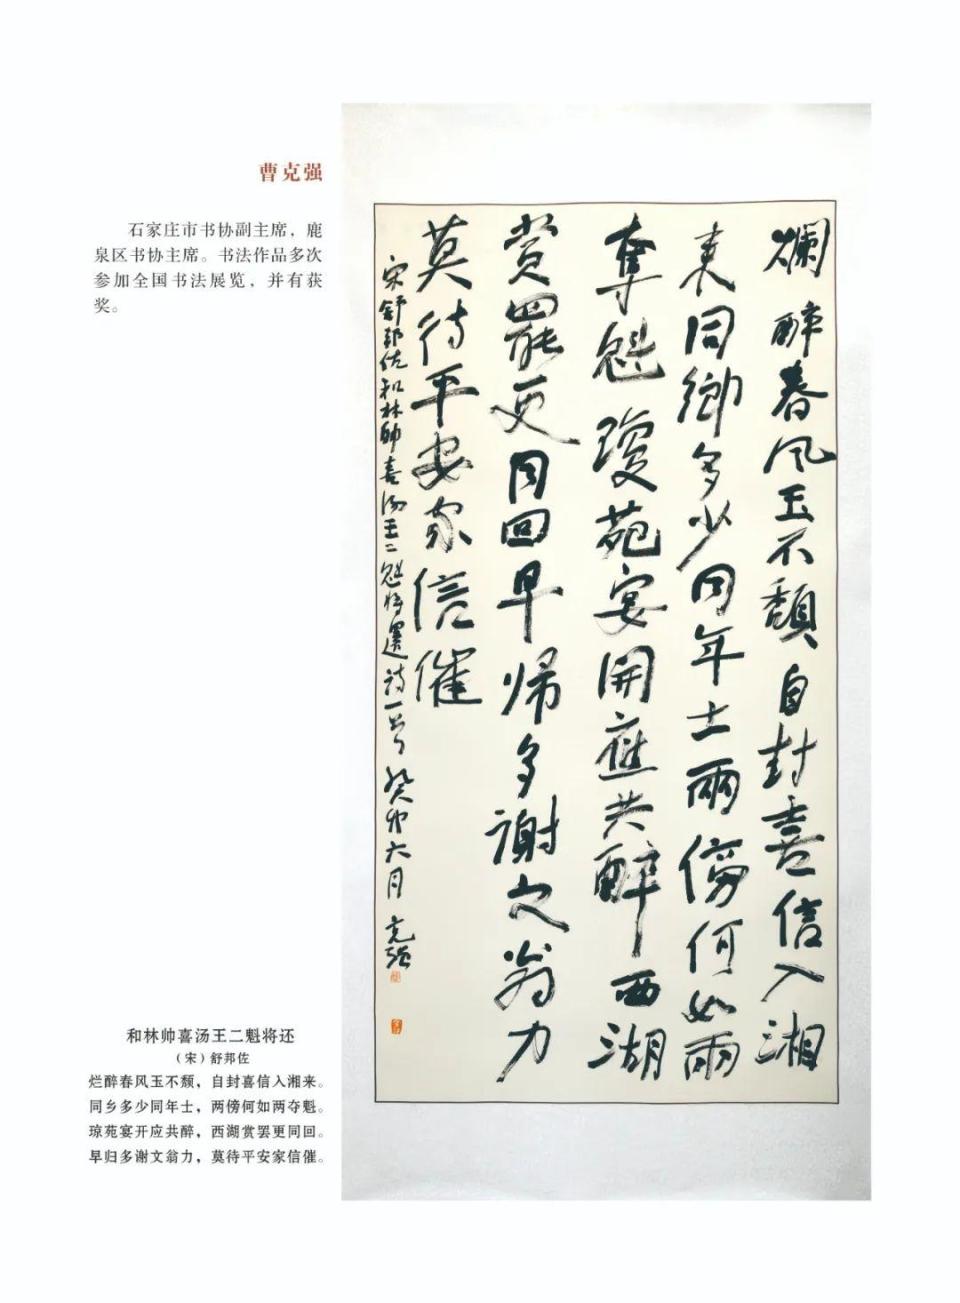 曹克强
石家庄市书协副主席，鹿
泉区书协主席。书法作品多次
参加全国书法展览，并有获
奖。
爛醉春风玉不頹自封喜信入湘
来同鄉多少同年士兩傍何如兩
奪魁瓊苑宴開應共醉西湖
赏罷更同回早帰多謝文翁力
莫待平安家信催
宋舒邦佐和林帥喜汤王二魁将還詩一首 癸卯六月 克强
和林帅喜汤王二魁将还
（宋）舒邦佐
烂醉春风玉不颓，自封喜信入湘来。
同乡多少同年士，两傍何如两夺魁。
琼苑宴开应共醉，西湖赏罢更同回。
早归多谢文翁力，莫待平安家信催。